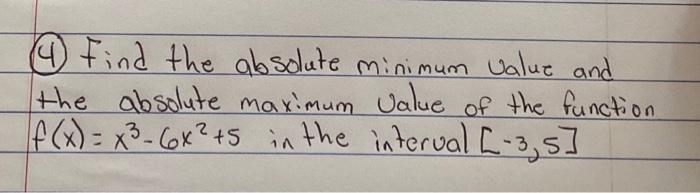 ④ Find the absolute minimum value and
the absolute maximum value of the function
f(x) = x³-6x²+5 in the interval [-3,5]